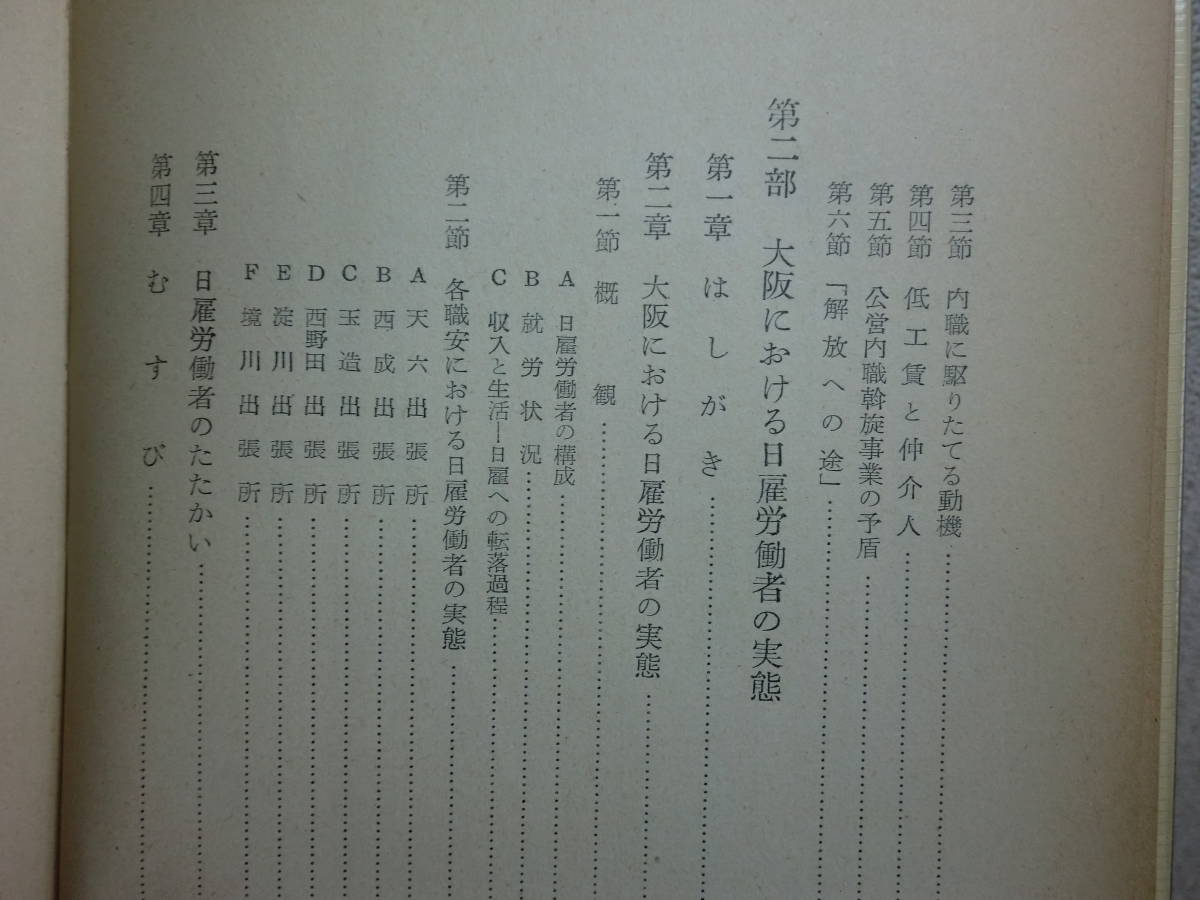 第三節 内職に駆りたてる動機
第四節 低工賃と仲介人
第五節 公営内職斡旋事業の予盾
第六節 「解放への途」
第二部 大阪における日雇労働者の実態
第一章 はしがき
第二章 大阪における日雇労働者の実態
第一節 概観
A 日雇労働者の構成
B 就労状況
C 収入と生活―日雇への転落過程
第二節 各職安における日雇労働者の実態
A 天六出張所
B 西成出張所
C 玉造出張所
D 西野田出張所
E 淀川出張所
F 境川出張所
第三章 日雇労働者のたたかい
第四章 むすび